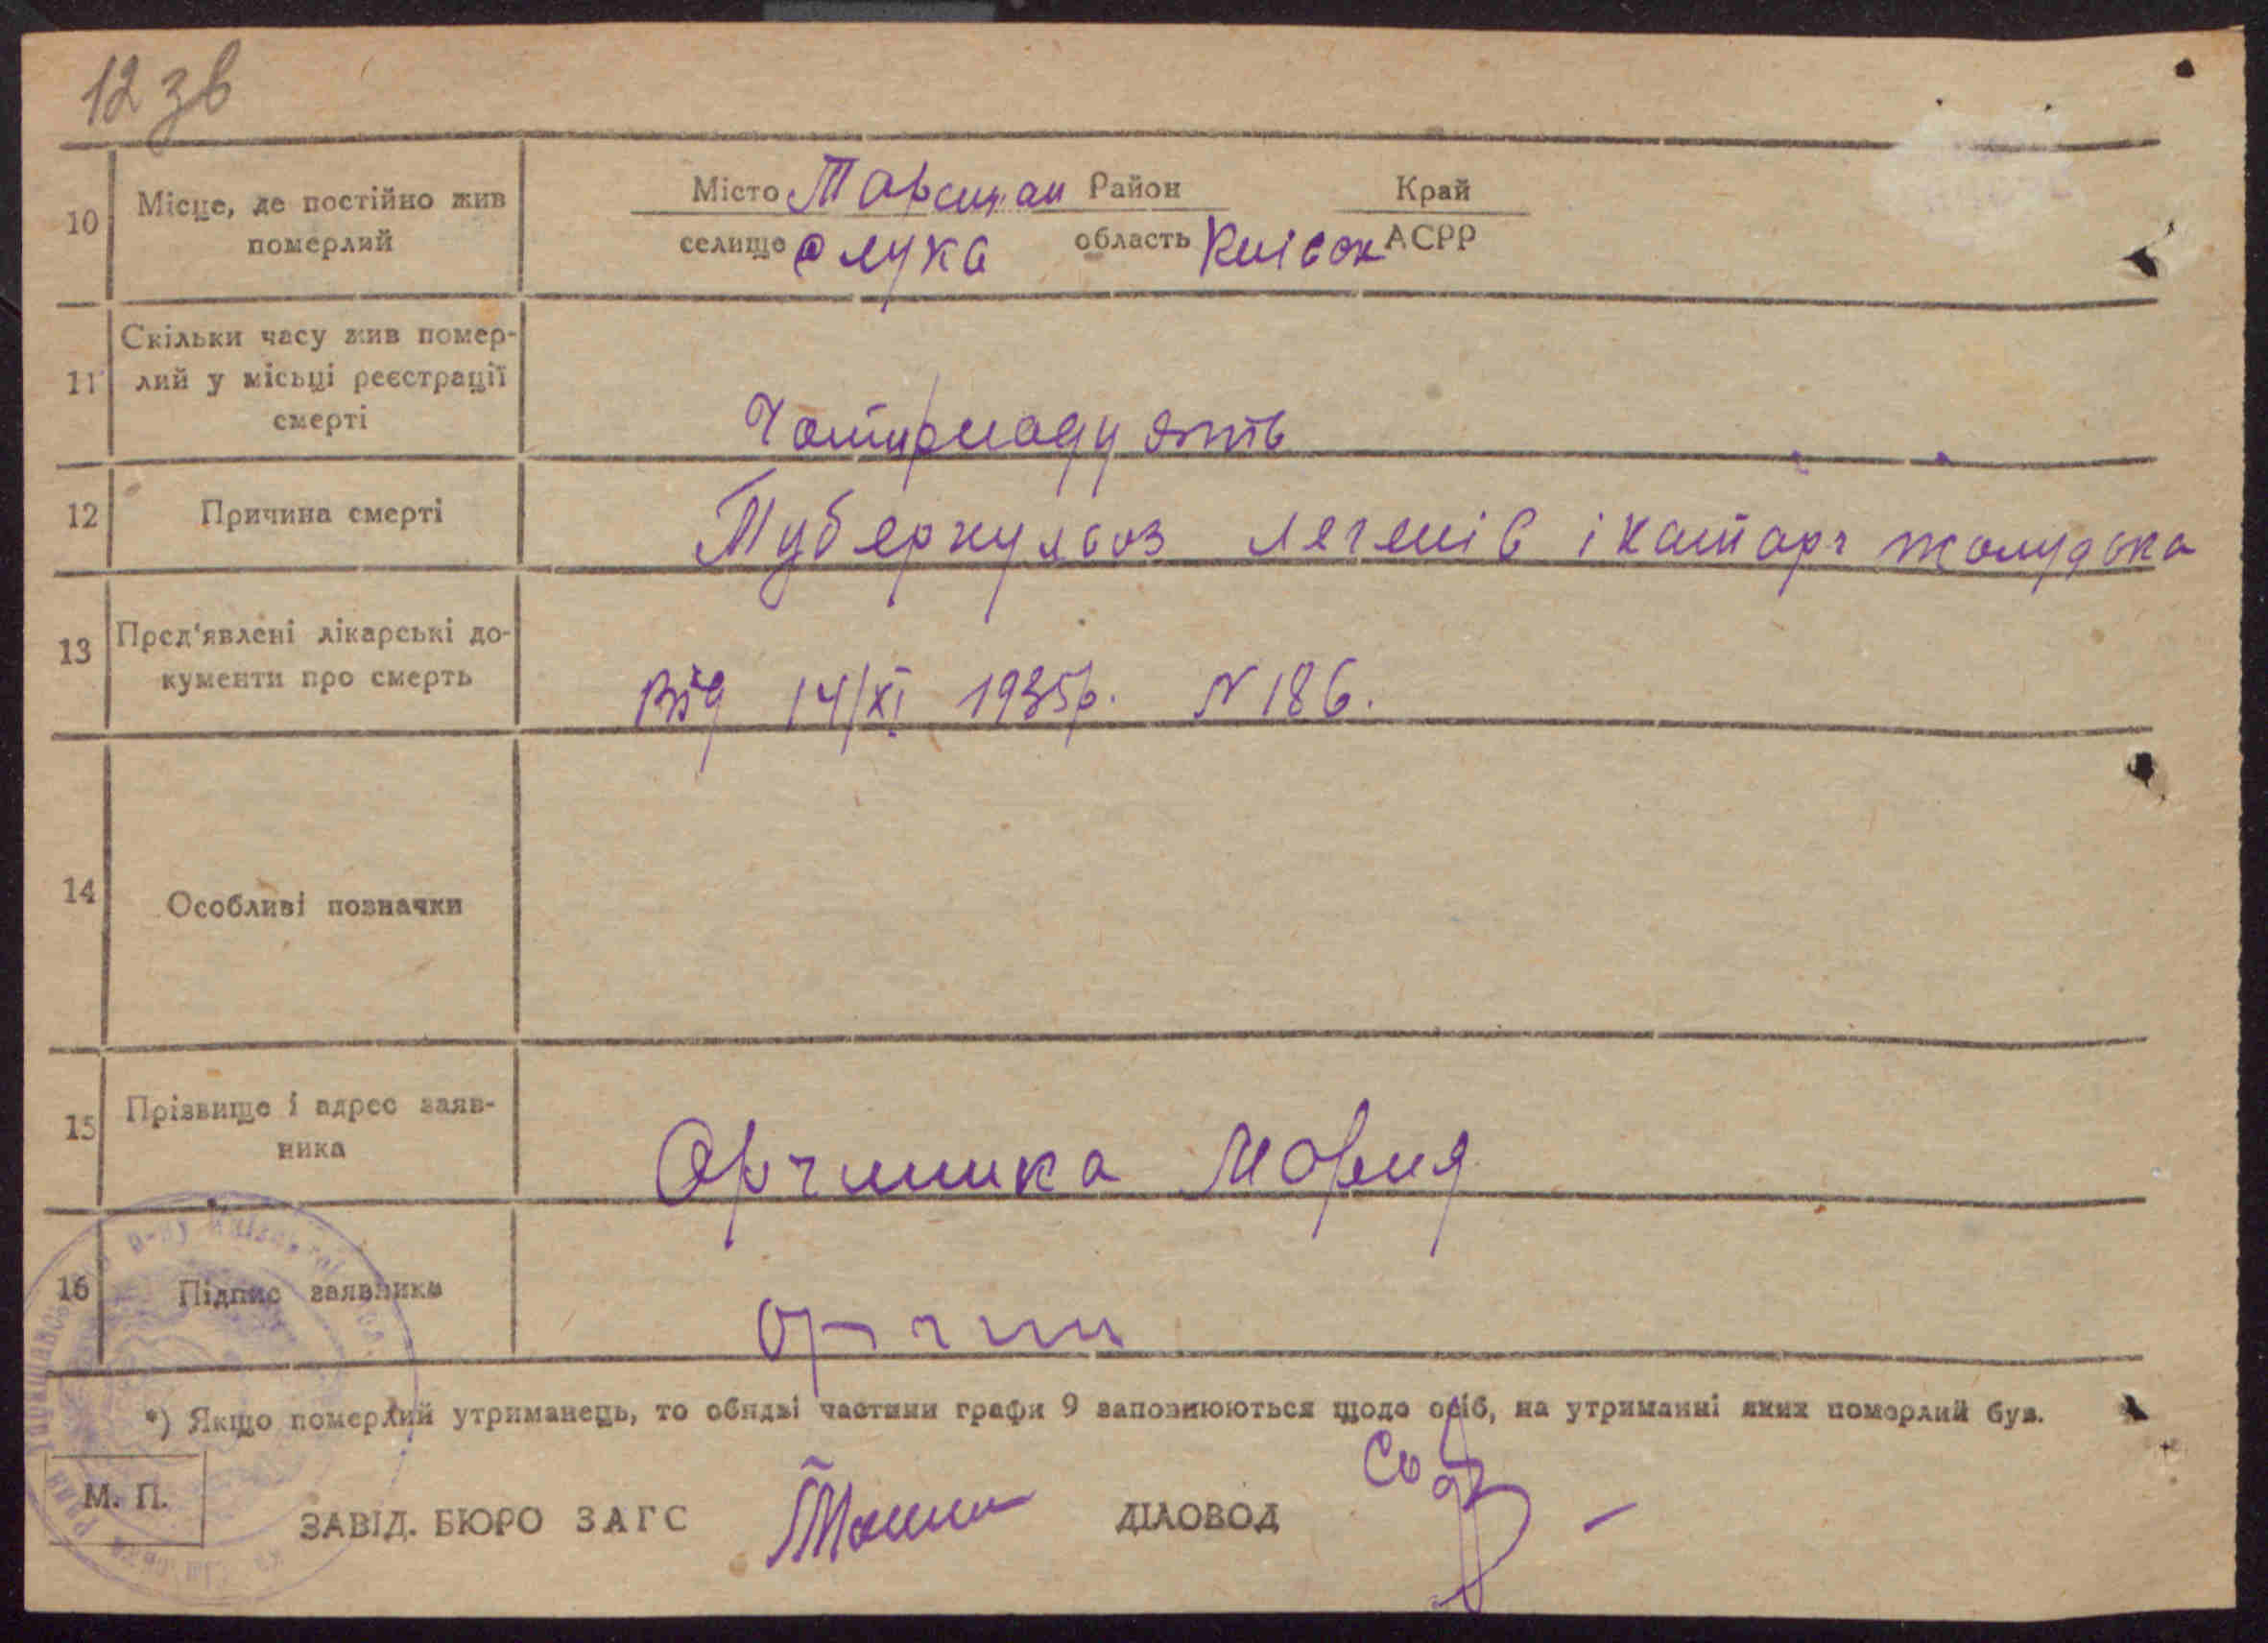 12 зв
10 Місце, де постійно жив померлий
Місто Таращан Район Край
селище с Лука область Київск АСРР
11 Скільки часу жив помер-
лий у місьці реєстрації
смерті
Чотирнадцять
12 Причина смерті Туберкульоз легенів і катарг жолудка
13 Пред'явлені лікарські до-
кументи про смерть
Від 14/XI 1935р. N 186.
14 Особливі позначки
15 Прізвище і адрес заяв-
ника
Мория
16 Підпис заявника
*) Якщо померлий утриманець, то обидві частини графи 9 заповнюються щодо осіб, на утриманні яких померлий був.
М. П.
ЗАВІД. БЮРО ЗАГС ДІЛОВОД